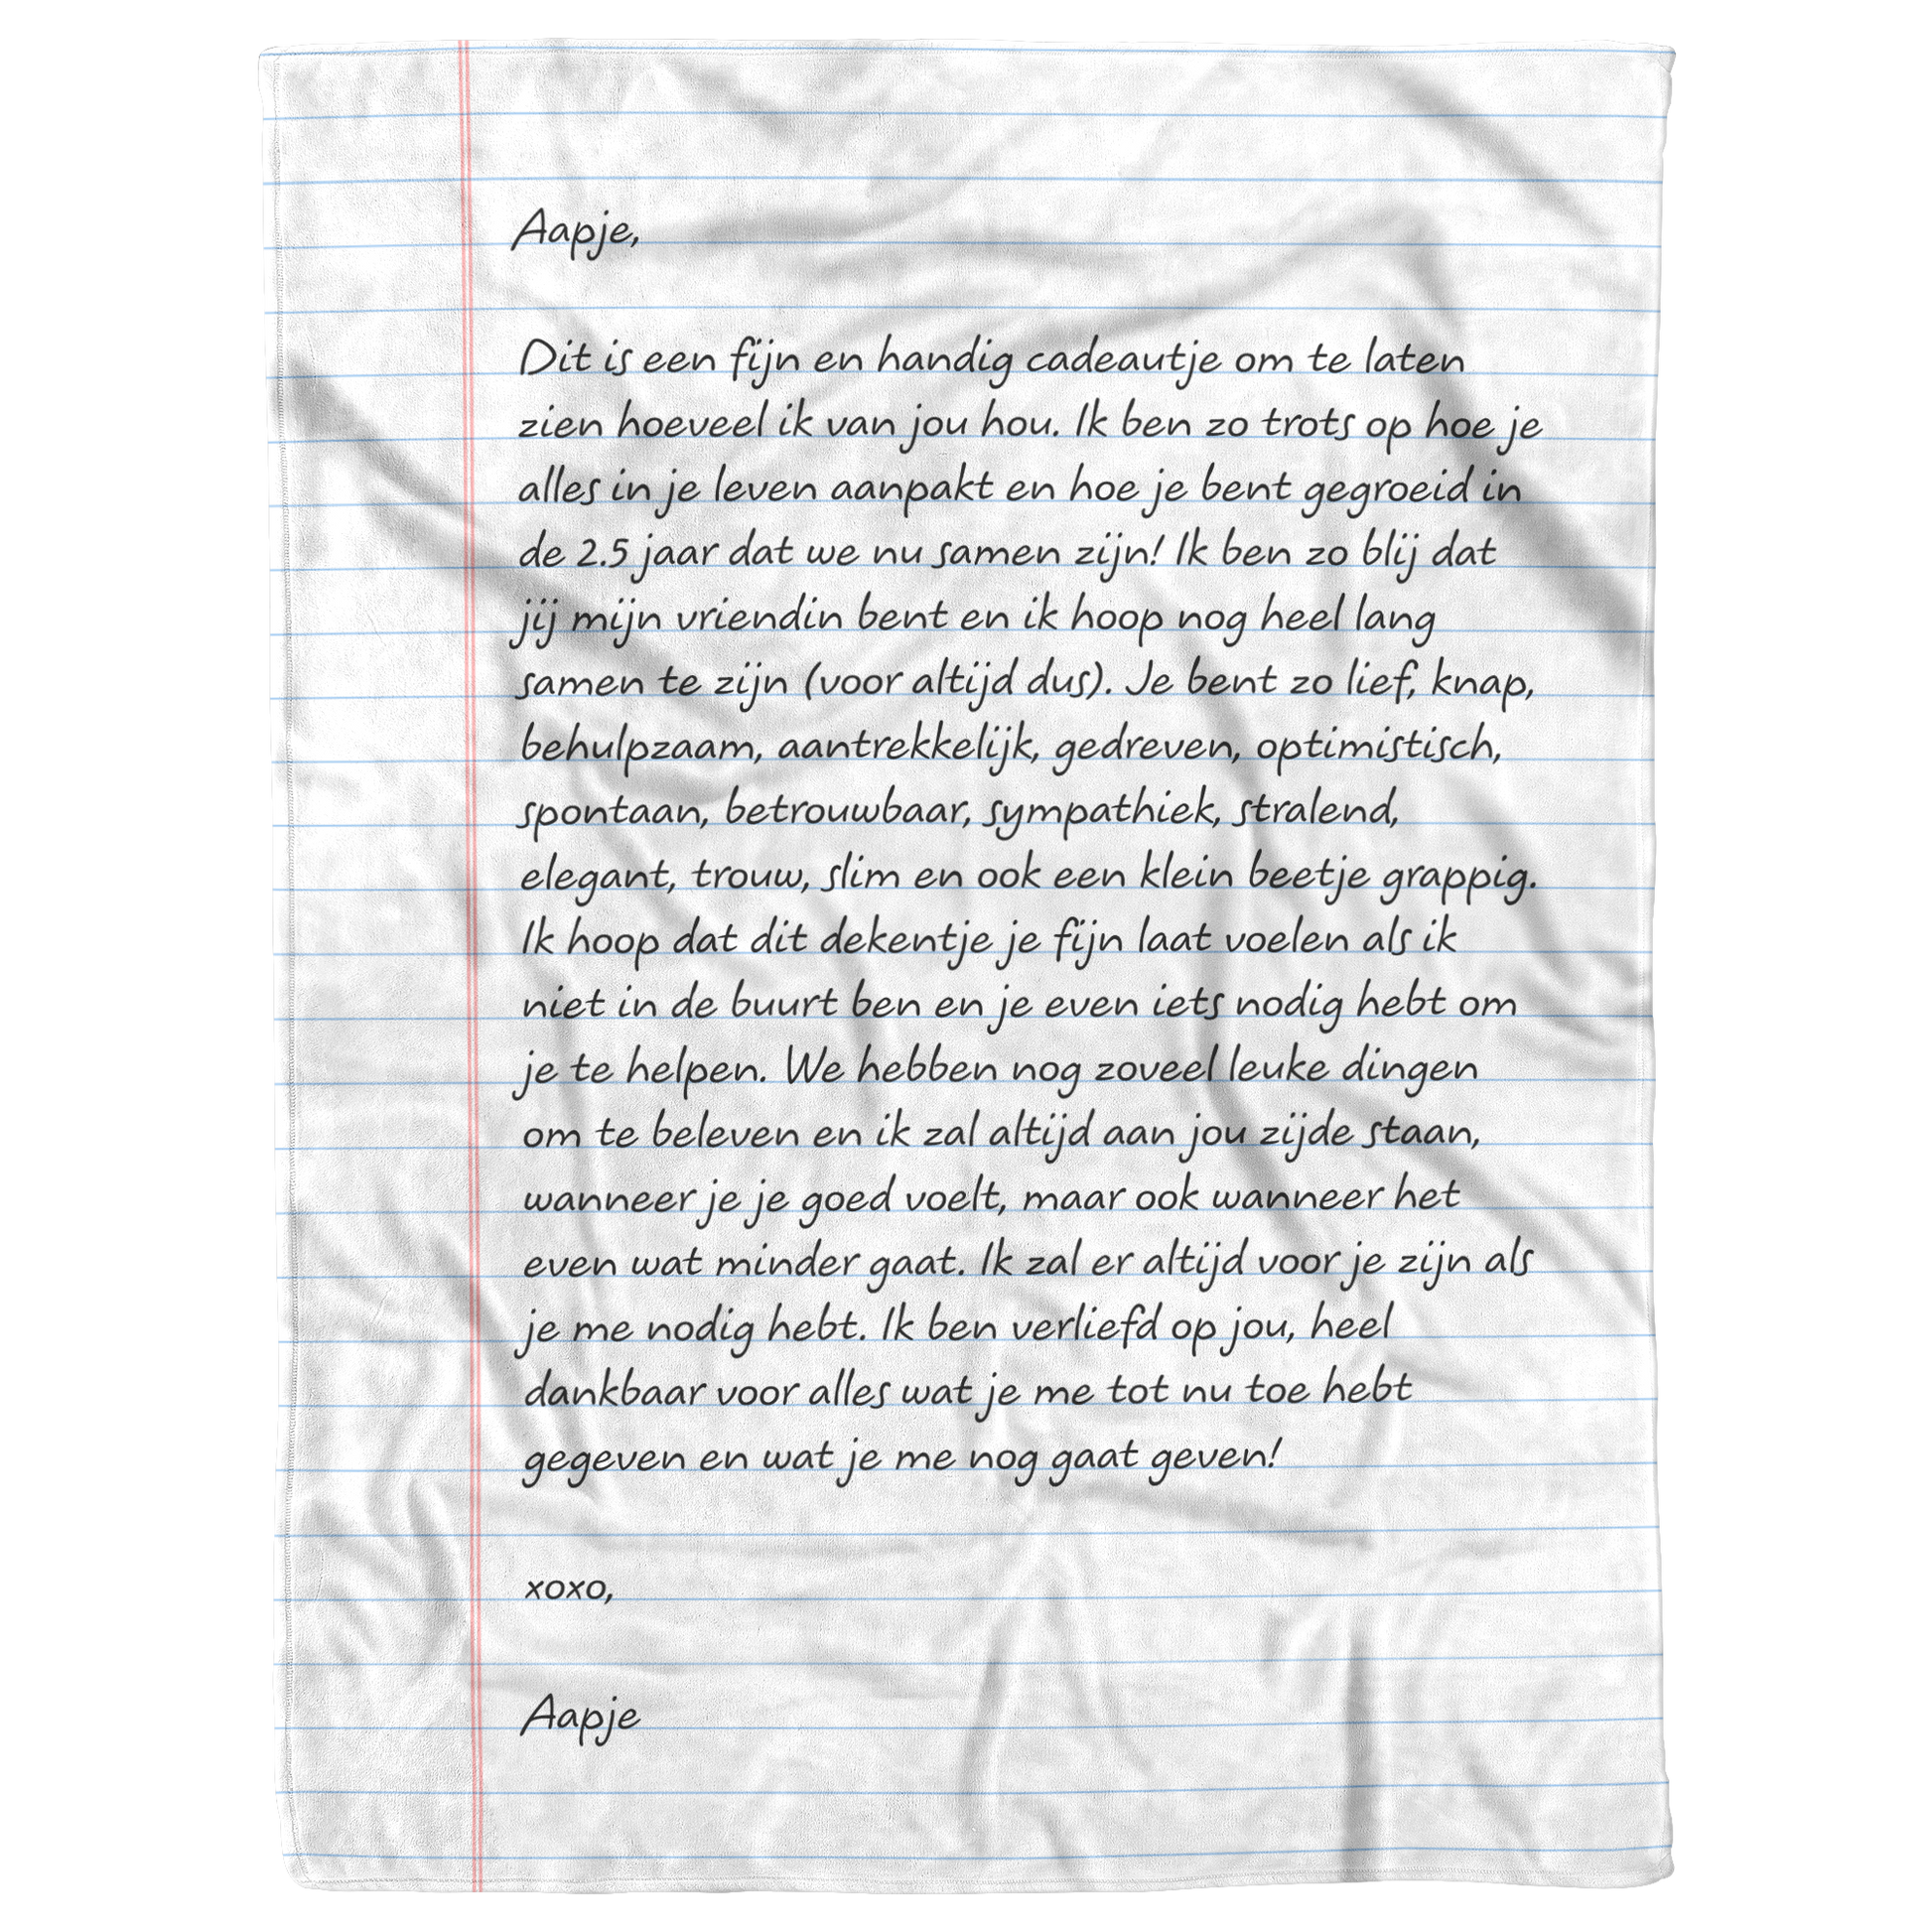 Aapje,
Dit is een fijn en handig cadeautje om te laten
zien hoeveel ik van jou hou. Ik ben zo trots op hoe je
alles in je leven aanpakt en hoe je bent gegroeid in
de 2.5 jaar dat we nu samen zijn! Ik ben zo blij dat
jij mijn vriendin bent en ik hoop nog heel lang
samen te zijn (voor altijd dus). Je bent zo lief, knap,
behulpzaam, aantrekkelijk, gedreven, optimistisch,
spontaan, betrouwbaar, sympathiek, stralend,
elegant, trouw, slim en ook een klein beetje grappig.
Ik hoop dat dit dekentje je fijn laat voelen als ik
niet in de buurt ben en je even iets nodig hebt om
je te helpen. We hebben nog zoveel leuke dingen
om te beleven en ik zal altijd aan jou zijde staan,
wanneer je je goed voelt, maar ook wanneer het
even wat minder gaat. Ik zal er altijd voor je zijn als
je me nodig hebt. Ik ben verliefd op jou, heel
dankbaar voor alles wat je me tot nu toe hebt
gegeven en wat je me nog gaat geven!
xoxo,
Aapje